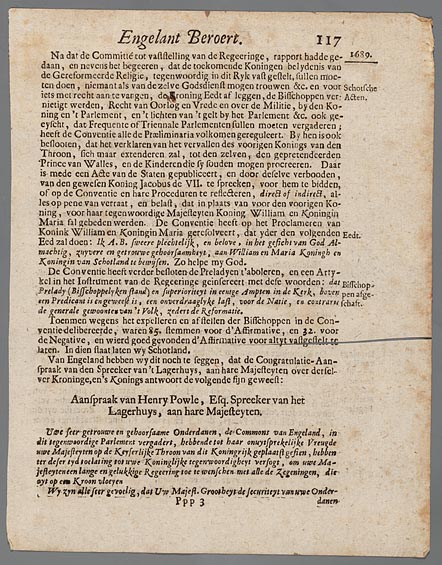 Engelant Beroert. 117
1689.
Na dat de Committé tot vaststelling van de Regeeringe, rapport hadde ge-
daan, en nevens het begeeren, dat de toekomende Koningen belydenis van
de Gereformeerde Religie, tegenwoordig in dit Ryk vast gestelt, sullen moe-
ten doen, niemant als van de zelve Godsdienst mogen trouwen &c. en voor
iets met recht aan te vangen, de Koning Eedt af leggen, de Bisschoppen ver-
nietigt werden, Recht van Oorlog en Vrede en over de Militie, by den Ko-
ning en 't Parlement, en 't lichten van 't gelt by het Parlement &c. ook ge-
eyscht, dat Frequente of Triennale Parlementen sullen moeten vergaderen;
heeft de Conventie alle de Præliminaria volkomen gereguleert. By hen is ook
beslooten, dat het verklaren van het vervallen des voorigen Konings van den
Throon, sich maar extenderen zal, tot den zelven, den gepretendeerden
Prince van Walles, en de Kinderen die sy souden mogen procreeren. Daar
is mede een Acte van de Staten gepubliceert, en door deselve verbooden,
van den gewesen Koning Jacobus de VII. te spreecken, voor hem te bidden,
of op de Conventie en hare Proceduren te reflecteren, direct of indirect, al-
les op pene van verraat, en belast, dat in plaats van voor den voorigen Ko-
ning, voor haar tegenwoordige Majesteyten Koning William en Koningin
Maria sal gebeden werden. De Conventie heeft op het Proclameren van
Konink William en Koningin Maria geresolveert, dat yder den volgenden
Eed zal doen: Ik A. B. sweere plechtelijk, en belove, in het gesicht van God Al-
machtig, zuyvere en getrouwe gehoorsaamheyt, aan William en Maria Koningh en
Koningin van Schotland te bewysen. Zo helpe my God.
Schotsche
Acten.
Eedt.
De Conventie heeft verder besloten de Preladyen t'aboleren, en een Arty-
kel in het Instrument van de Regeeringe geinsereert met dese woorden: dat
Prelady (Bisschoppelyken staat) en superioriteyt in eenige Ampten in de Kerk, boven
een Predicant is en geweest is, een onverdraaglyke last, voor de Natie, en contrarie
de generale gewoonten van 't Volk, zederts de Reformatie.
Bisschop-
pen afge-
schaft.
Toenmen wegens het expelleren en afstellen der Bisschoppen in de Con-
ventie delibereerde, waren 85. stemmen voor d'Affirmative, en 32. voor
de Negative, en wierd goed gevonden d'Affirmative voor altyt vastgestelt te
laten. In dien staat laten wy Schotland.
Van Engeland hebben wy dit noch te seggen, dat de Congratulatie-Aan-
spraak van den Spreecker van 't Lagerhuys, aan hare Majesteyten over dersel-
ver Kroninge, en 's Konings antwoort de volgende sijn geweest:
Aanspraak van Henry Powle, Esq. Spreeker van het
Lagerhuys, aan hare Majesteyten.
Uwe seer getrouwe en gehoorsame Onderdanen, de Commons van Engeland, in
dit tegenwoordige Parlement vergadert, hebbende tot haar onuytsprekelijke Vreugde
uwe Majesteyten op de Keyserlijke Throon van dit Koningrijk geplaatst gesien, hebben
ter deser tyd toelating tot uwe Koninglijke tegenwoordigheyt versogt, om uwe Ma-
jesteyten een lange en gelukkige Regeering toe te wenschen met alle de Zegeningen, die
oyt op een Kroon vloeyen
Wy zyn alle seer gevoelig, dat Uw Majest. Grootheyt de securiteyt van uwe Onder-
Ppp 3
danen